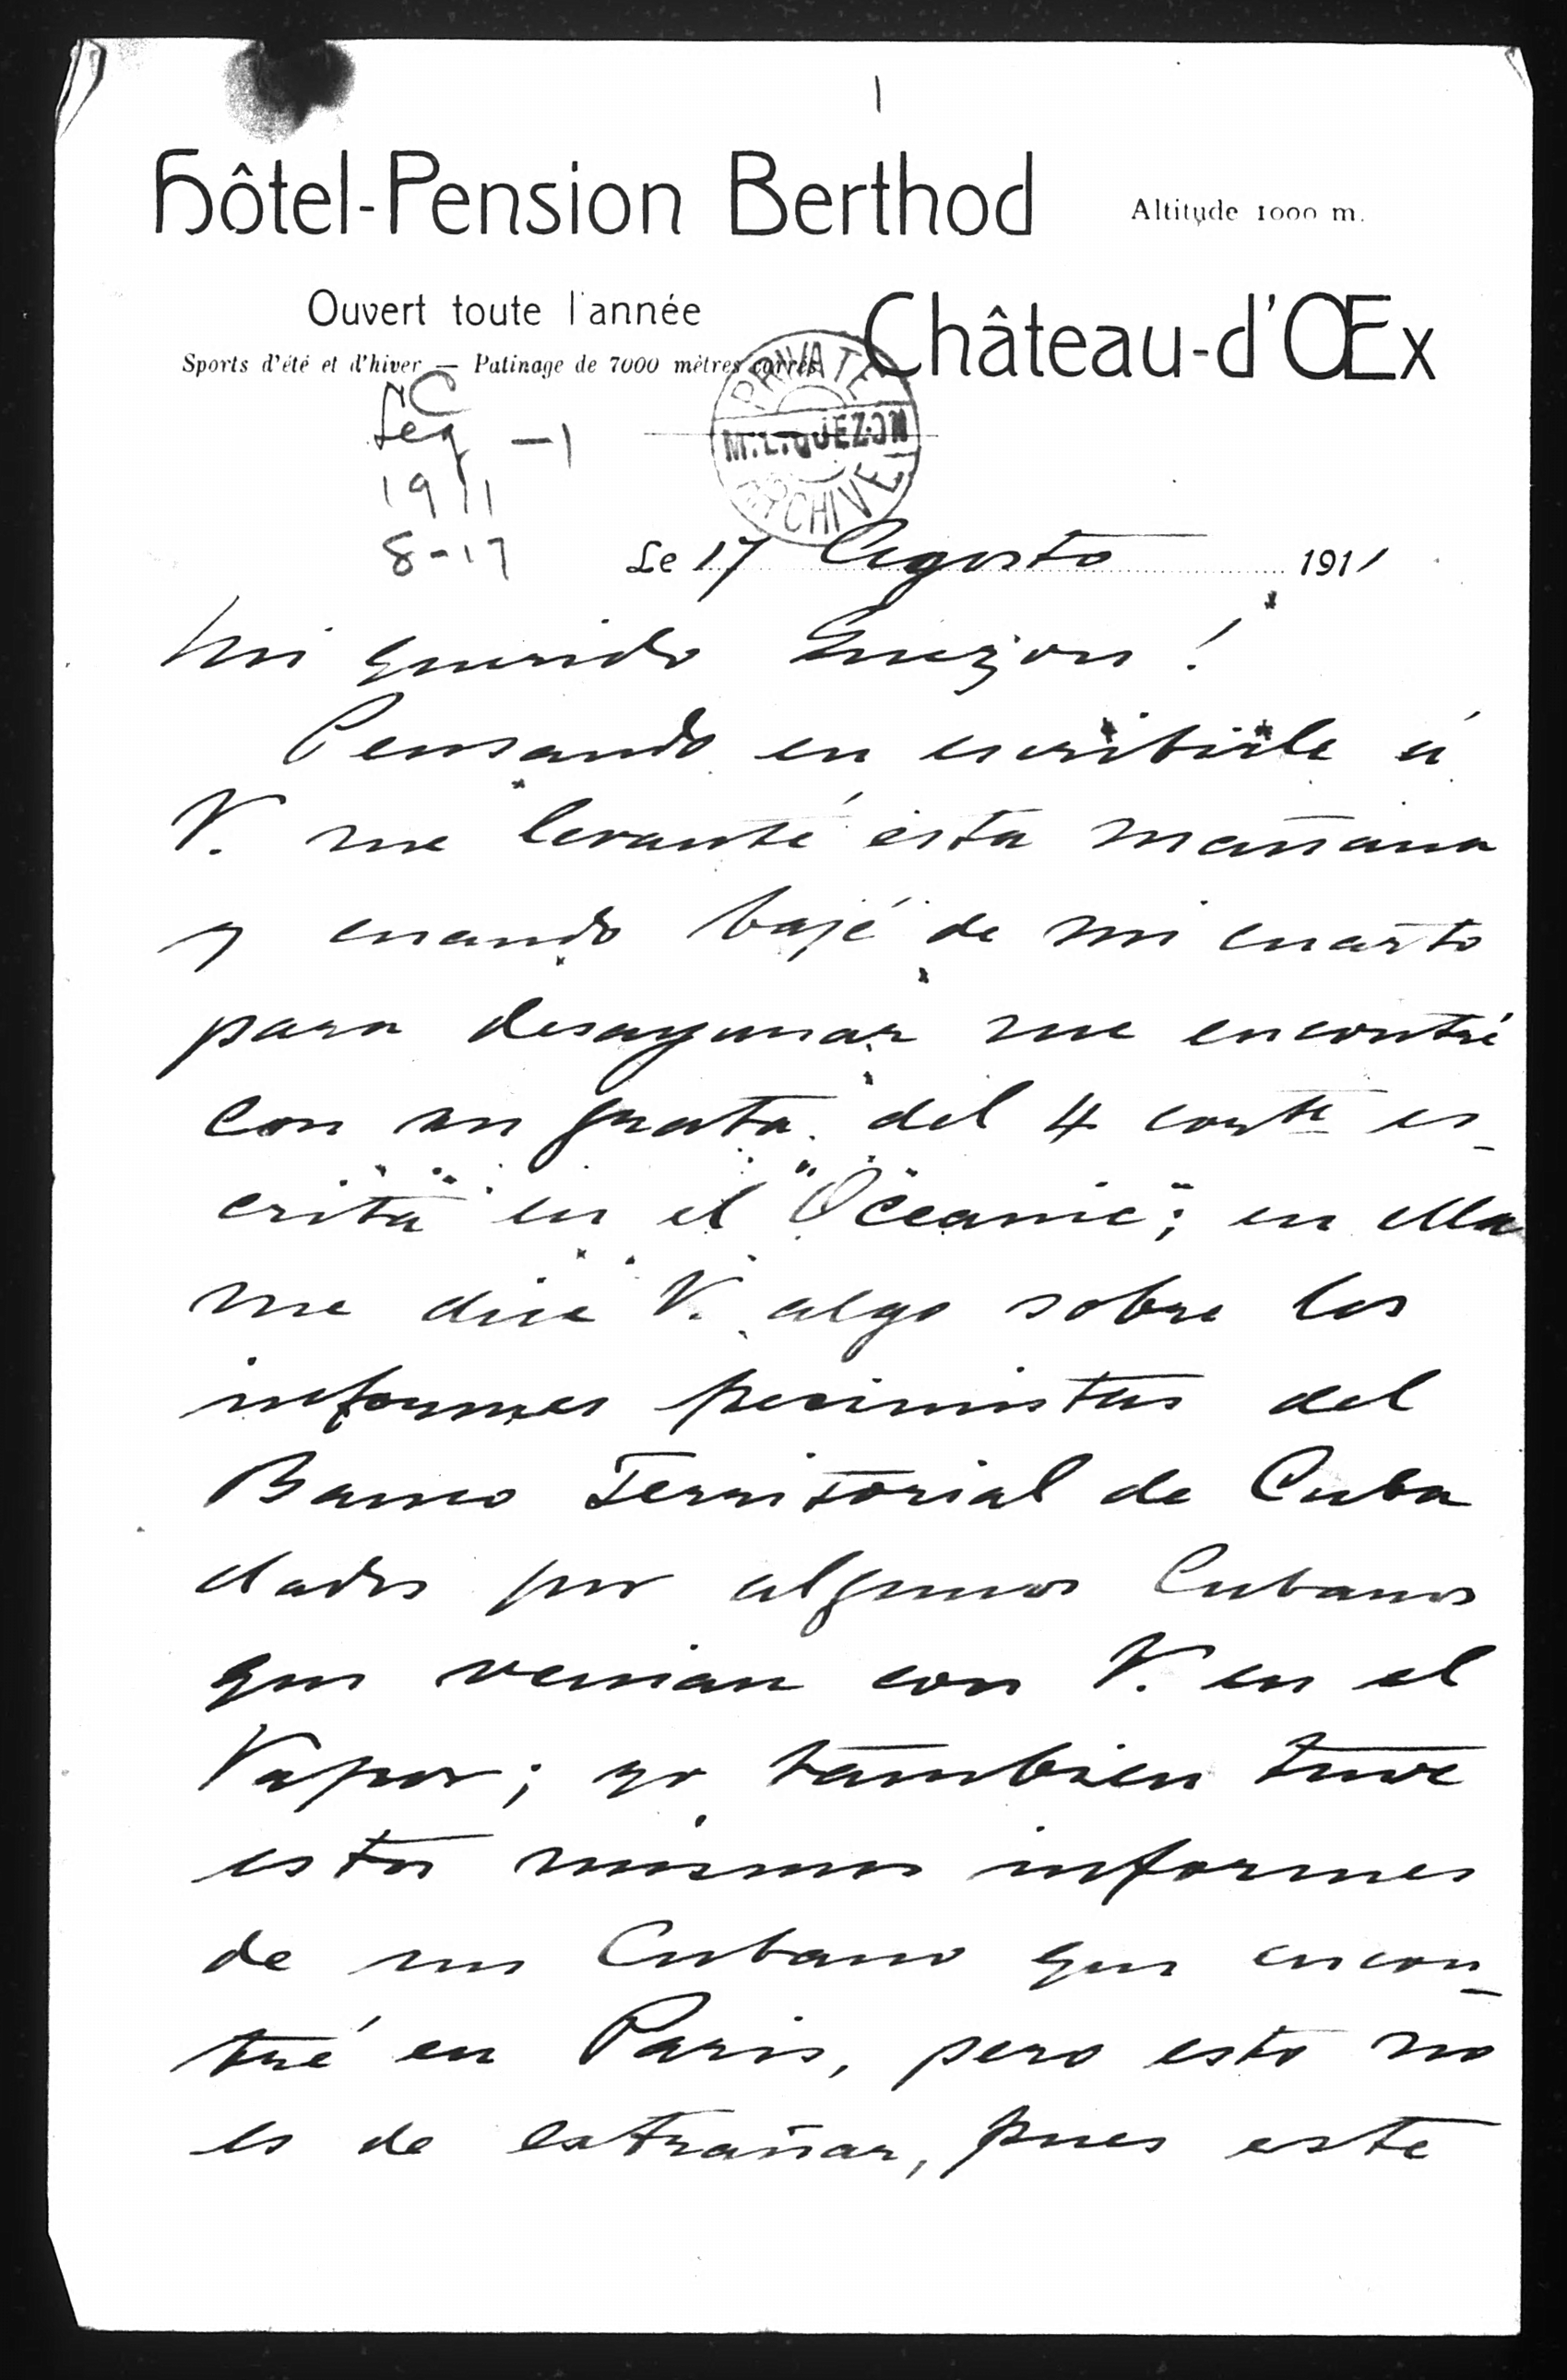 1
Hôtel-Pension Berthod
Altitude 1000 m.
Ouvert toute l'année
Château-d'Œx
Sports d'été et d'hiver — Patinage de 7000 mètres carrés
PRIVATE
M. L. QUEZON
ARCHIVE
Leg -1
1911
8-17
Le 17 Agosto 1911
Mi querido Quezon!
Pensando en escribirle á
V. me levanté esta mañana
y cuando bajé de mi cuarto
para desayunar me encontré
con su grata del 4 corte es-
crita en el "Oceanic"; en ella
me dice V. algo sobre los
informes pesimistas del
Banco Territorial de Cuba
dados por algunos Cubanos
que venian con V. en el
Vapor; yo tambien tuve
estos mismos informes
de un Cubano que encon-
tré en Paris, pero esto no
es de extrañar, pues este